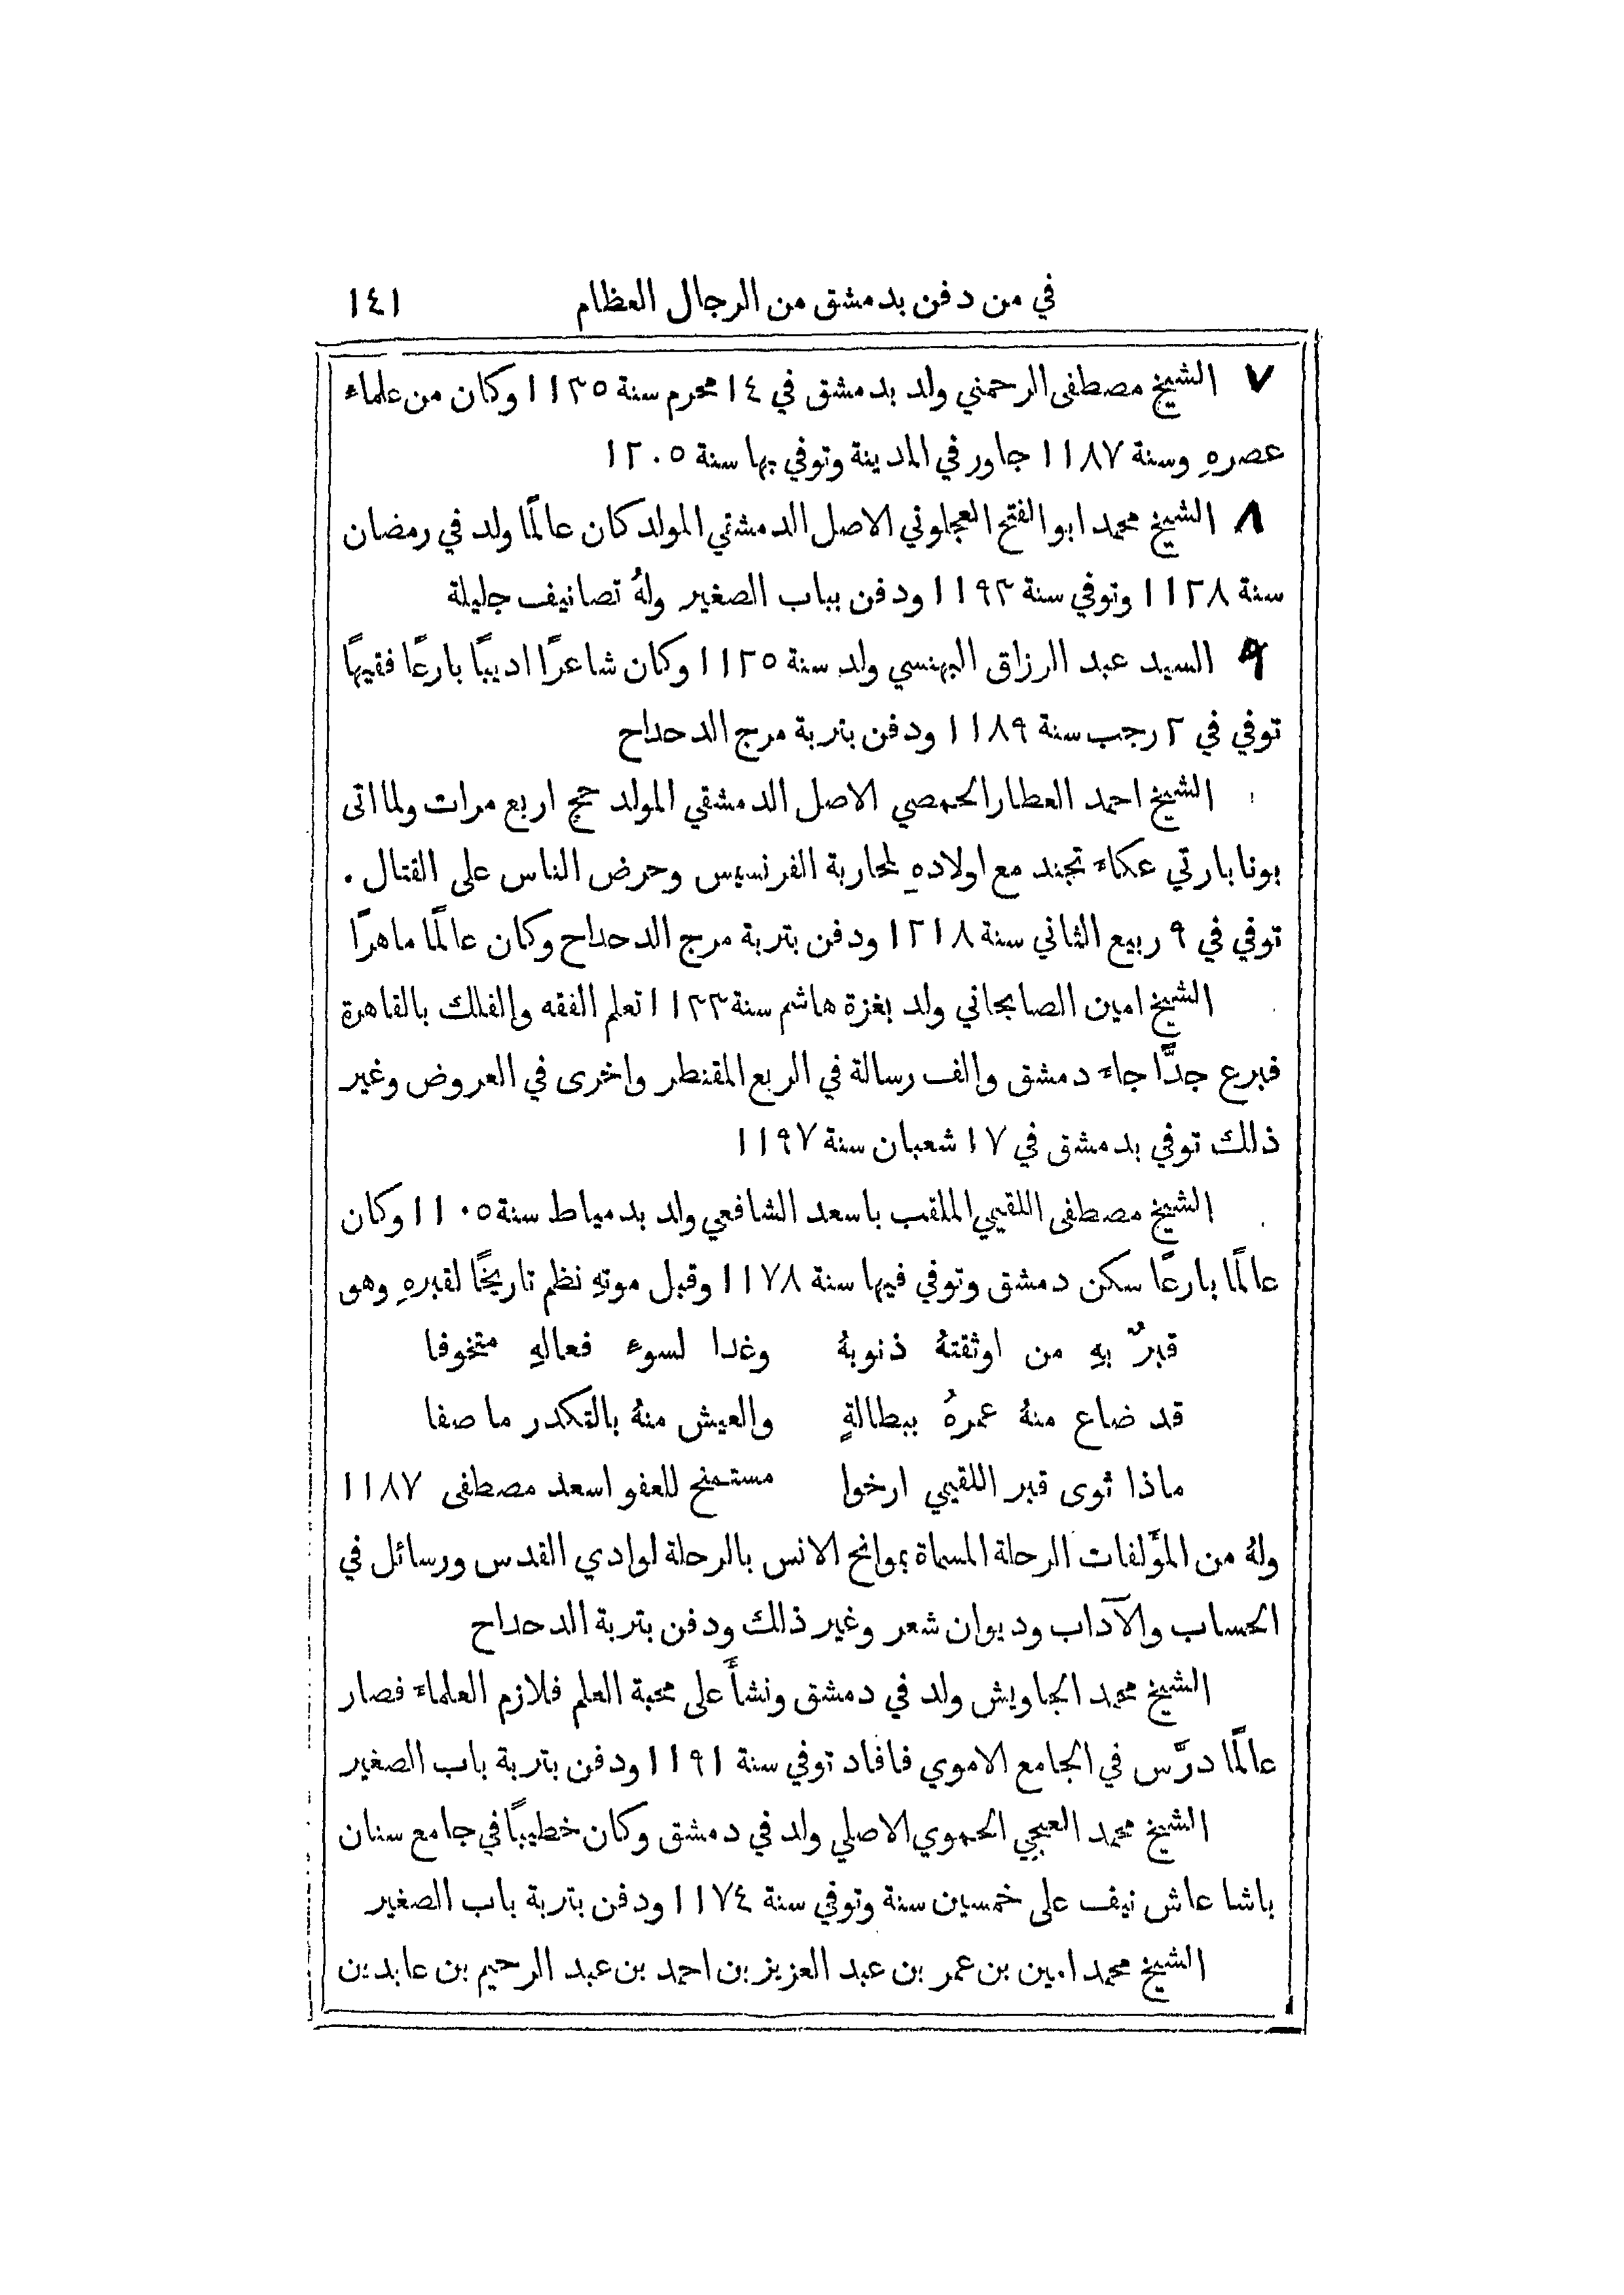 في من دفن بدمشق من الرجال العظام ١٤١
٧ الشيخ مصطفى الرحمني ولد بدمشق في ١٤ محرم سنة ١١٣٥ وكان من علماء
عصرهِ وسنة ١١٨٧ جاور في المدينة وتوفي بها سنة ١٢٠٥
٨ الشيخ محمد ابو الفتح العجلوني الاصل الدمشقي المولد كان عالمًا ولد في رمضان
سنة ١١٢٨ وتوفي سنة ١١٩٣ ودفن بباب الصغير ولهُ تصانيف جليلة
٩ السيد عبد الرزاق البهنسي ولد سنة ١١٢٥ وكان شاعرًا اديبًا بارعًا فقيهًا
توفي في ٢ رجب سنة ١١٨٩ ودفن بتربة مرج الدحداح
الشيخ احمد العطار الحمصي الاصل الدمشقي المولد حج اربع مرات ولما اتى
بونابارتي عكاء تجند مع اولادهِ لمحاربة الفرنسيس وحرض الناس على القتال .
توفي في ٩ ربيع الثاني سنة ١٢١٨ ودفن بتربة مرج الدحداح وكان عالمًا ماهرًا
الشيخ امين الصايحاني ولد بغزة هاشم سنة ١١٣٣ تعلم الفقه والفلك بالقاهرة
فبرع جدًّا جاء دمشق والف رسالة في الربع المقنطر واخرى في العروض وغير
ذلك توفي بدمشق في ١٧ شعبان سنة ١١٩٧
الشيخ مصطفى اللقيمي الملقب باسعد الشافعي ولد بدمياط سنة ١١٠٥ وكان
عالمًا بارعًا سكن دمشق وتوفي فيها سنة ١١٧٨ وقبل موتهِ نظم تاريخًا لقبرهِ وهو
قبرٌ بهِ من اوثقتهُ ذنوبهُ وغدا لسوء فعالهِ متخوفا
قد ضاع منهُ عمرهُ ببطالةٍ والعيش منهُ بالتكدر ما صفا
ماذا ثوى قبر اللقيمي ارخوا مستمنح للعفو اسعد مصطفى ١١٨٧
ولهُ من المؤَلفات الرحلة المسماة بموانح الانس بالرحلة لوادي القدس ورسائل في
الحساب والآداب وديوان شعر وغير ذلك ودفن بتربة الدحداح
الشيخ محمد الجاويش ولد في دمشق ونشأَ على محبة العلم فلازم العلماء فصار
عالمًا درَّس في الجامع الاموي فافاد توفي سنة ١١٩١ ودفن بتربة باب الصغير
الشيخ محمد العبجي الحموي الاصلي ولد في دمشق وكان خطيبًا في جامع سنان
باشا عاش نيف على خمسين سنة وتوفي سنة ١١٧٤ ودفن بتربة باب الصغير
الشيخ محمد امين بن عمر بن عبد العزيز بن احمد بن عبد الرحيم بن عابدين